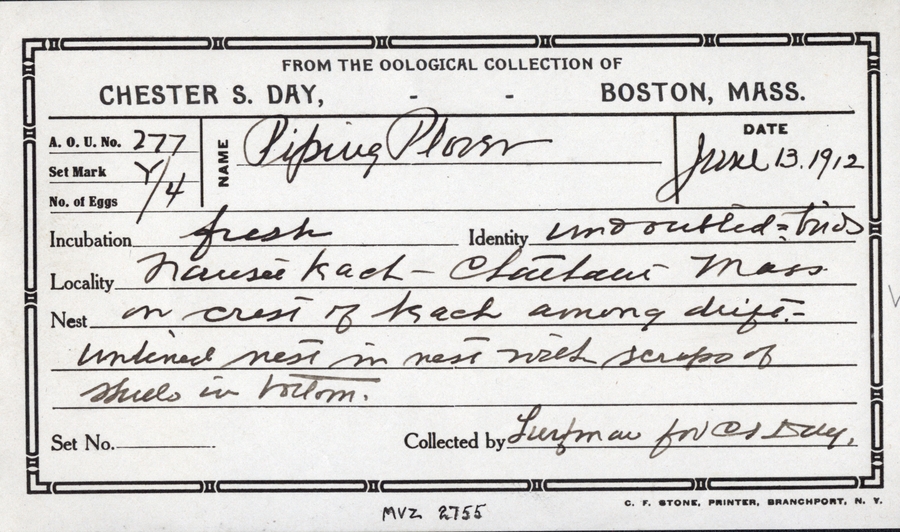 FROM THE OOLOGICAL COLLECTION OF
CHESTER S. DAY, - - BOSTON, MASS.
A. O. U. No. 277
NAME Piping Plover
DATE
June 13. 1912
Set Mark Y/4
No. of Eggs
Incubation fresh Identity undoubted = birds
Locality beach - Chatham Mass
Nest on crest of beach among drift. -
Unlined nest in nest with scraps of
shells in bottom.
Set No.
Collected by Surfman for CS Day.
C. F. STONE, PRINTER, BRANCHPORT, N. Y.
MVZ 2755